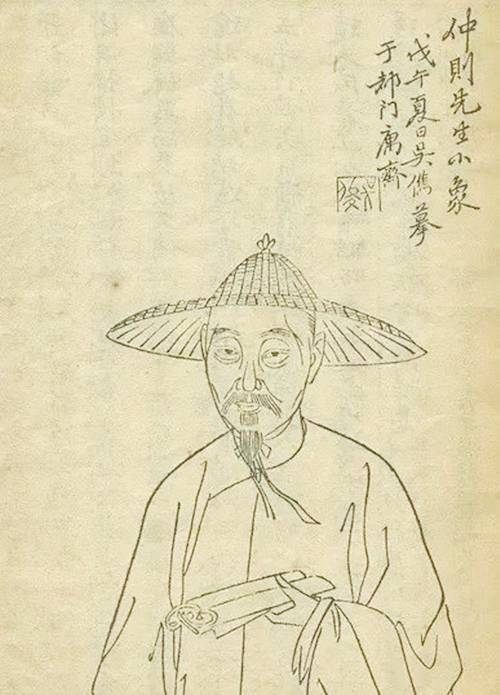 仲則先生小象
戊午夏日吳儁摹
于都门寓齋
吳儁